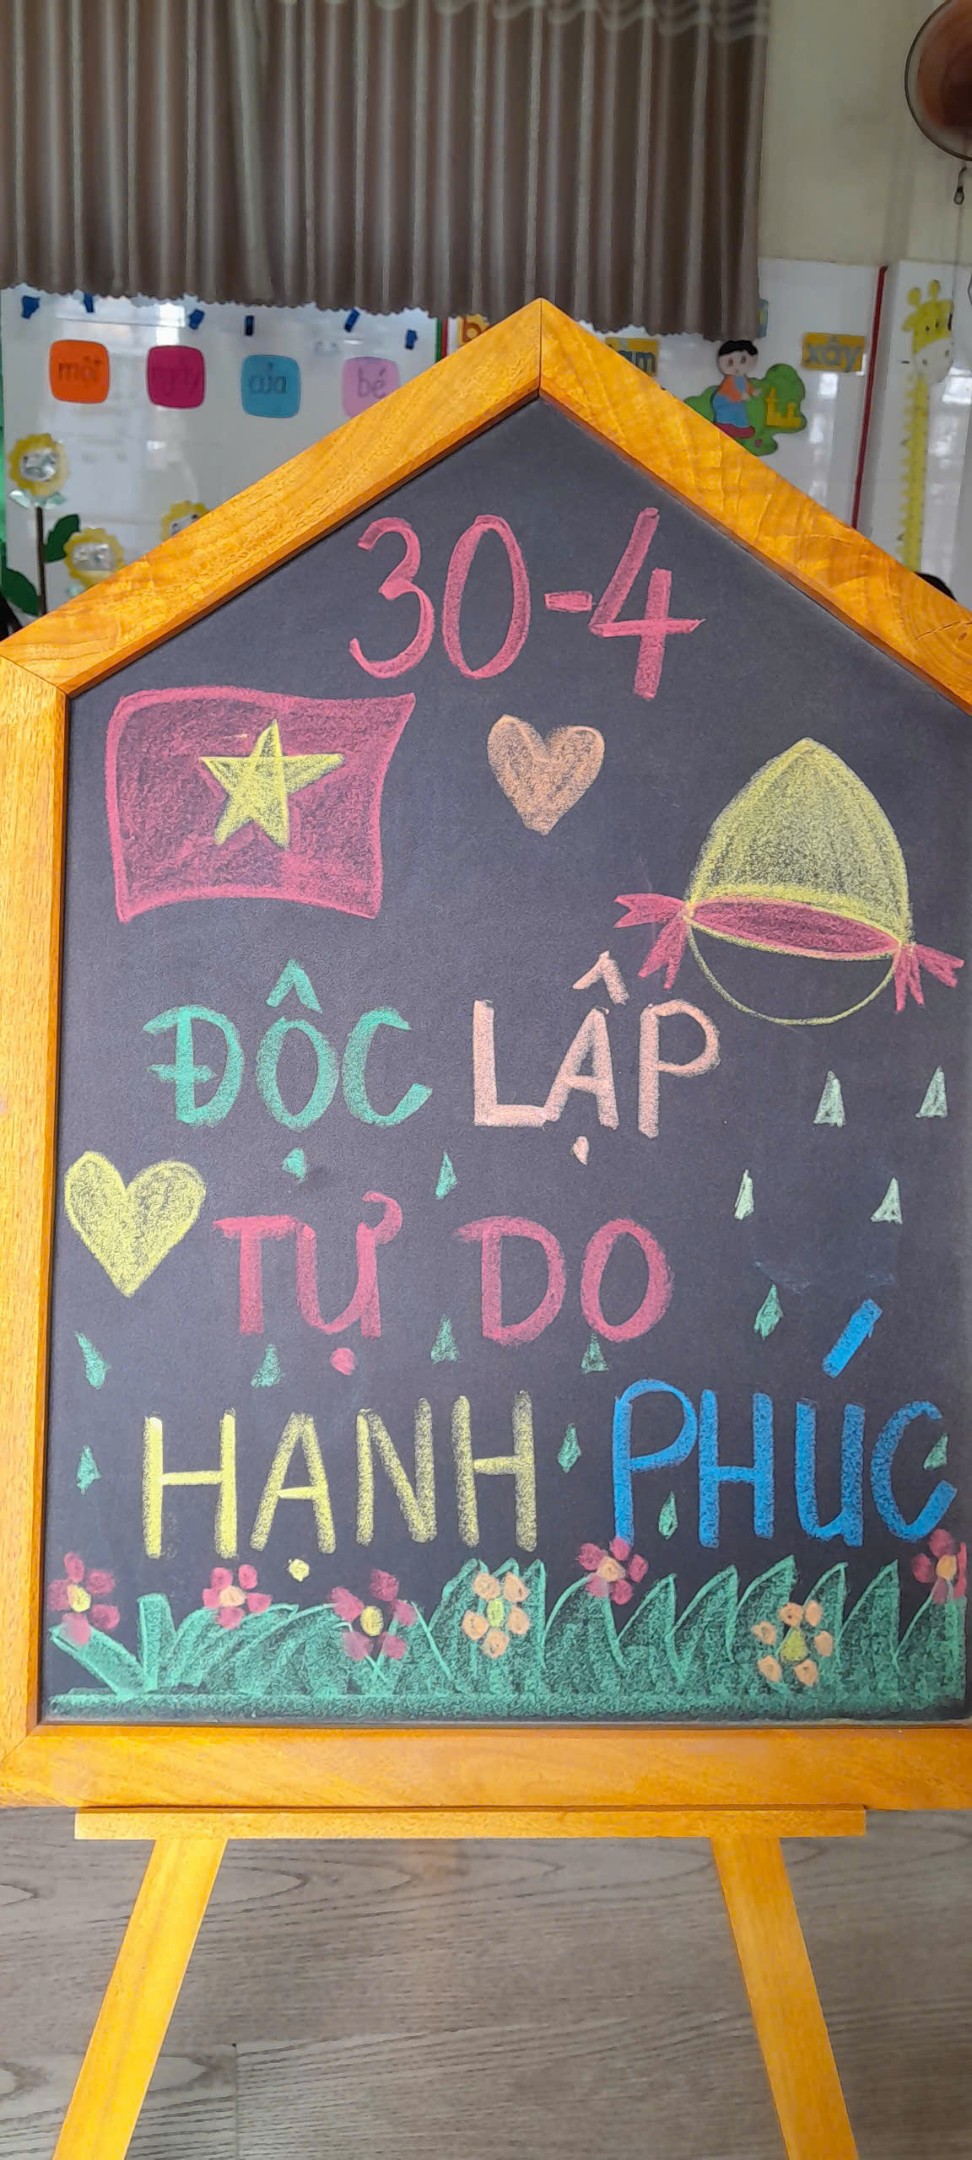 một ngày của bé
xây
30-4
ĐỘC LẬP
TỰ DO
HẠNH PHÚC